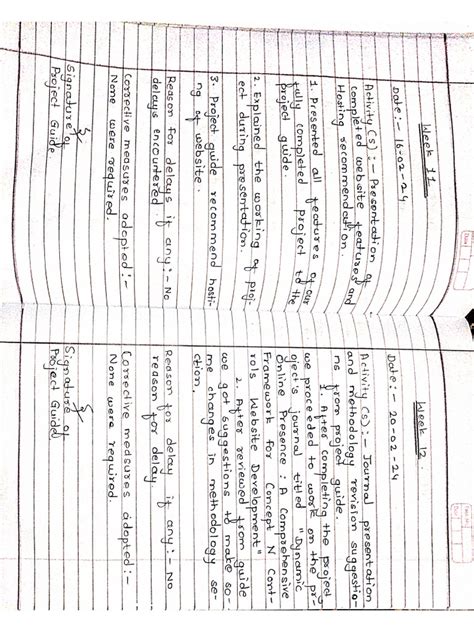 Week 11
Date:- 16-02-24
Activity(s):- Presentation of
completed website features and
Hosting recommendation.
1. Presented all features of our
fully completed project to the
project guide.
2. Explained the working of proj-
ect during presentation.
3. Project guide recommend hosti-
ng of website.
Reason for delays if any:- No
delays encountered
Corrective measures adopted:-
None were required.
Signature of
Project Guide
Week 12
Date:- 20-02-24
Activity(s):- Journal presentation
and methodology revision suggestio-
ns from project guide.
1. After completing the project
we proceeded to work on the pr-
oject's journal titled "Dynamic
Online Presence: A Comprehensive
Framework for Concept N Cont-
rols Website Development"
2. After reviewed from guide
we got suggestions to make so-
me changes in methodology se-
ction.
Reason for delay if any:- No
reason for delay
Corrective measures adopted:-
None were required.
Signature of
Project Guide